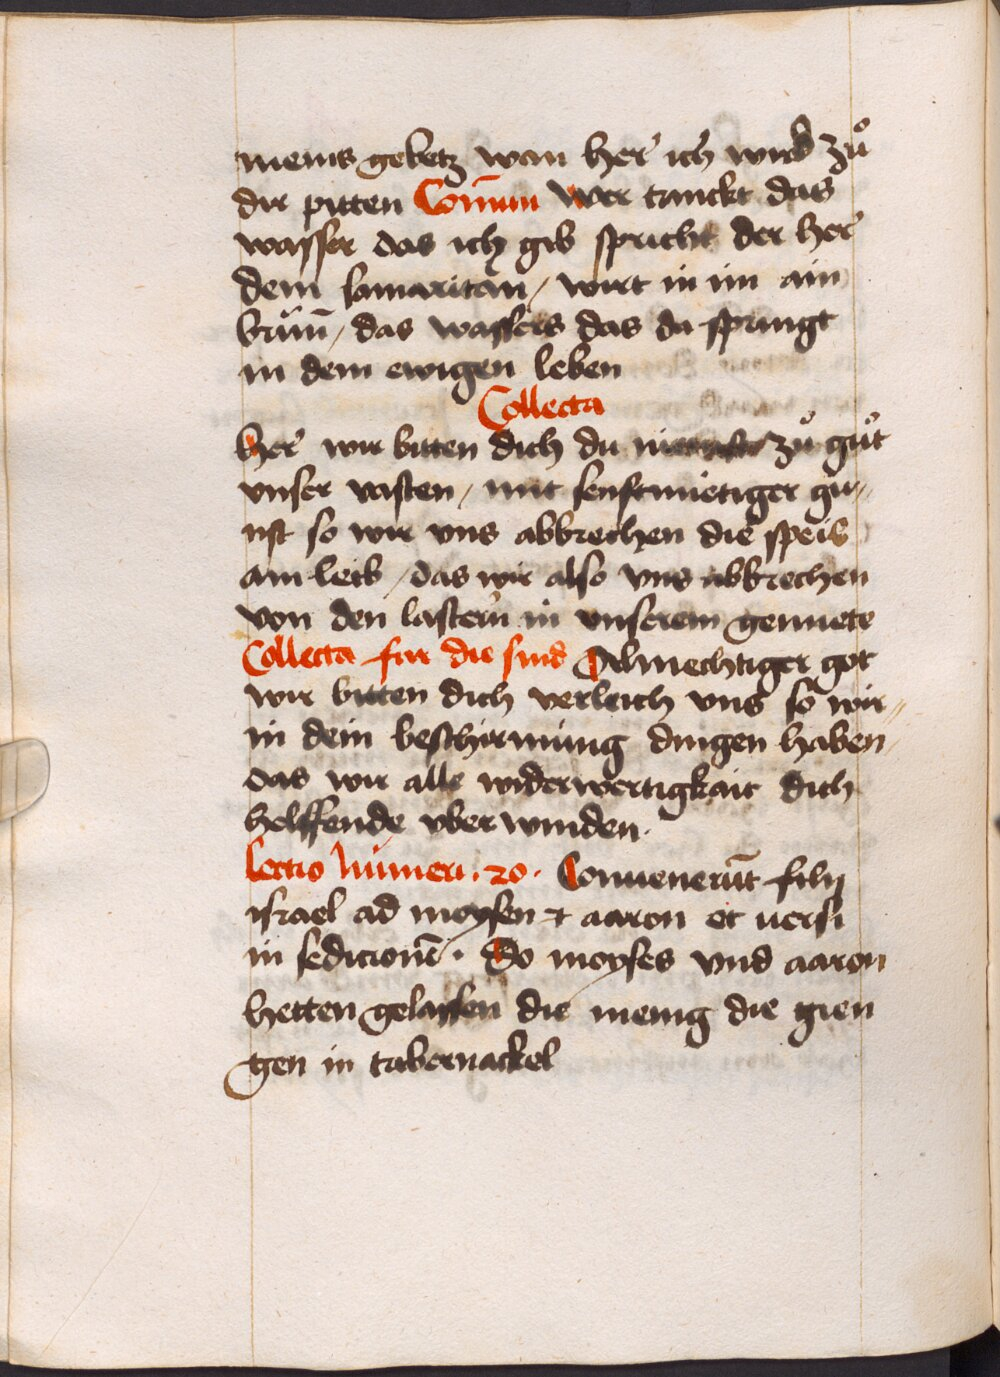 meins gebetz wan her ich wird zuͦ
dir pitten Com̄un Wer trinckt das
wasser das ich gib spricht der her
dem samaritan / wirt in im ain
brun̄ / das wassers das da springt
in dem ewigen leben
Collecta
Her wir bitten dich du zuͦ guͦt
vnser vasten / mit senftmietiger gu⸗
nst so wir vns abbrechen die speis
am leib / das wir also vns abbrechen
von den lastern in vnserem gemiete
Collecta fur die sind Almechtiger got
wir bitten dich verleich vns so wir⸗
in dein beschirmung dingen haben /
das wir alle widerwertigkait dich
helffende vberwinden.
Lectio Numeri . 20 . Conuenerūt filij
israel ad moysen ⁊ aaron et uersi
in sedicionē . Do moyses vnd aaron
hetten gelassen die menig die gien
gen in tabernackel